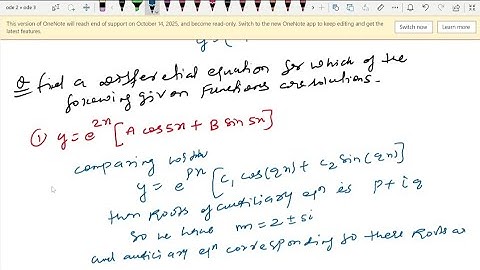 ode 2 + ode 3
This version of OneNote will reach end of support on October 14, 2025, and become read-only. Switch to the new OneNote app to keep editing and get the
latest features.
Switch now
y=(
Q find a differential equation for which of the
following given Functions are solutions.
① y = e^{2x} [A cos5x + B sin 5x]
comparing with
y = e^{px} [c₁ cos(qx) + c₂ sin(qx)]
then Roots of auxiliary eqⁿ is p + i q
so we have m = 2 ± 5i
and auxiliary eqⁿ corresponding to these Roots as